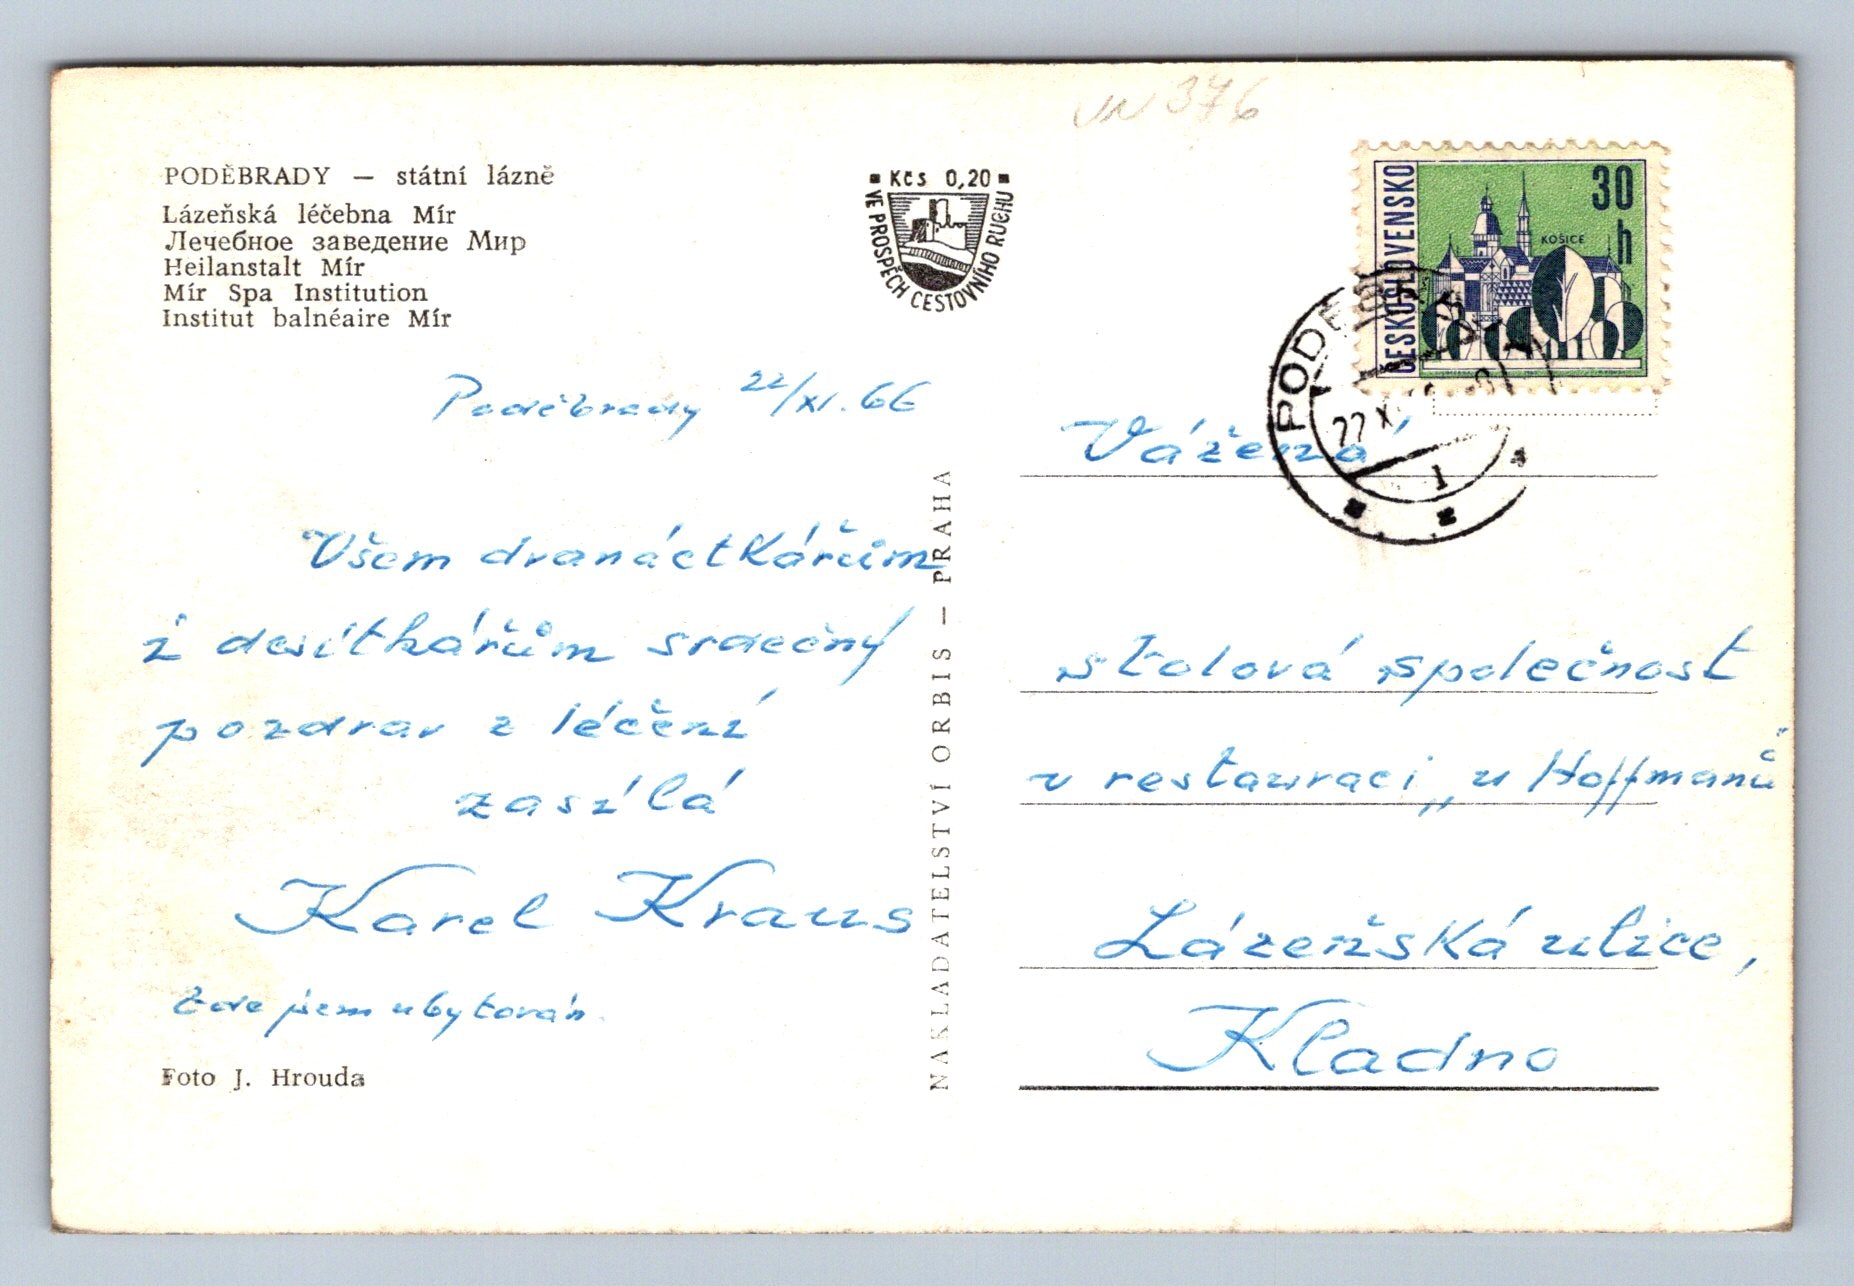 vn 376
PODĚBRADY — státní lázně
Lázeňská léčebna Mír
Лечебное заведение Мир
Heilanstalt Mír
Mír Spa Institution
Institut balnéaire Mír
Kčs 0,20
VE PROSPĚCH CESTOVNÍHO RUCHU
ČESKOSLOVENSKO
30
h
KOŠICE
22 X
1
Poděbrady 22/XI. 66
Všem dvanáctkářům
i desítkářům srdečný
pozdrav z léčení
zasílá
Karel Kraus
Zde jsem ubytován.
Foto J. Hrouda
NAKLADATELSTVÍ ORBIS — PRAHA
Vážená
stolová společnost
v restauraci „u Hoffmanů"
Lázeňská ulice,
Kladno